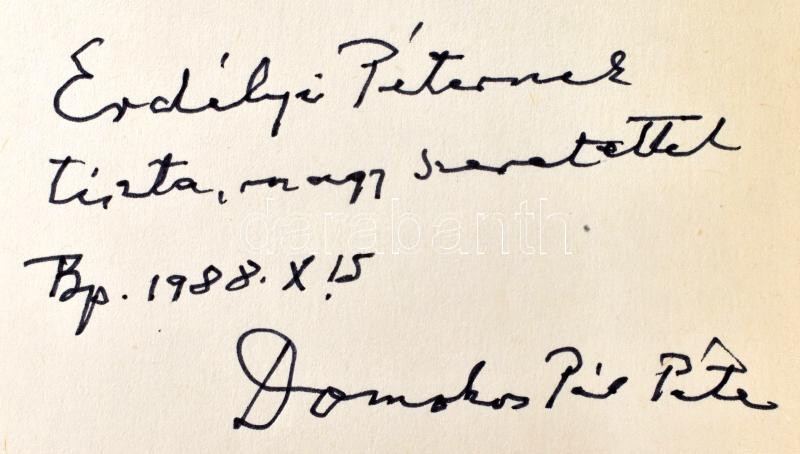 Erdélyi Péternek
tiszta, nagy szeretettel
darabanth
Bp. 1988. X. 15
Domokos Pál Péter